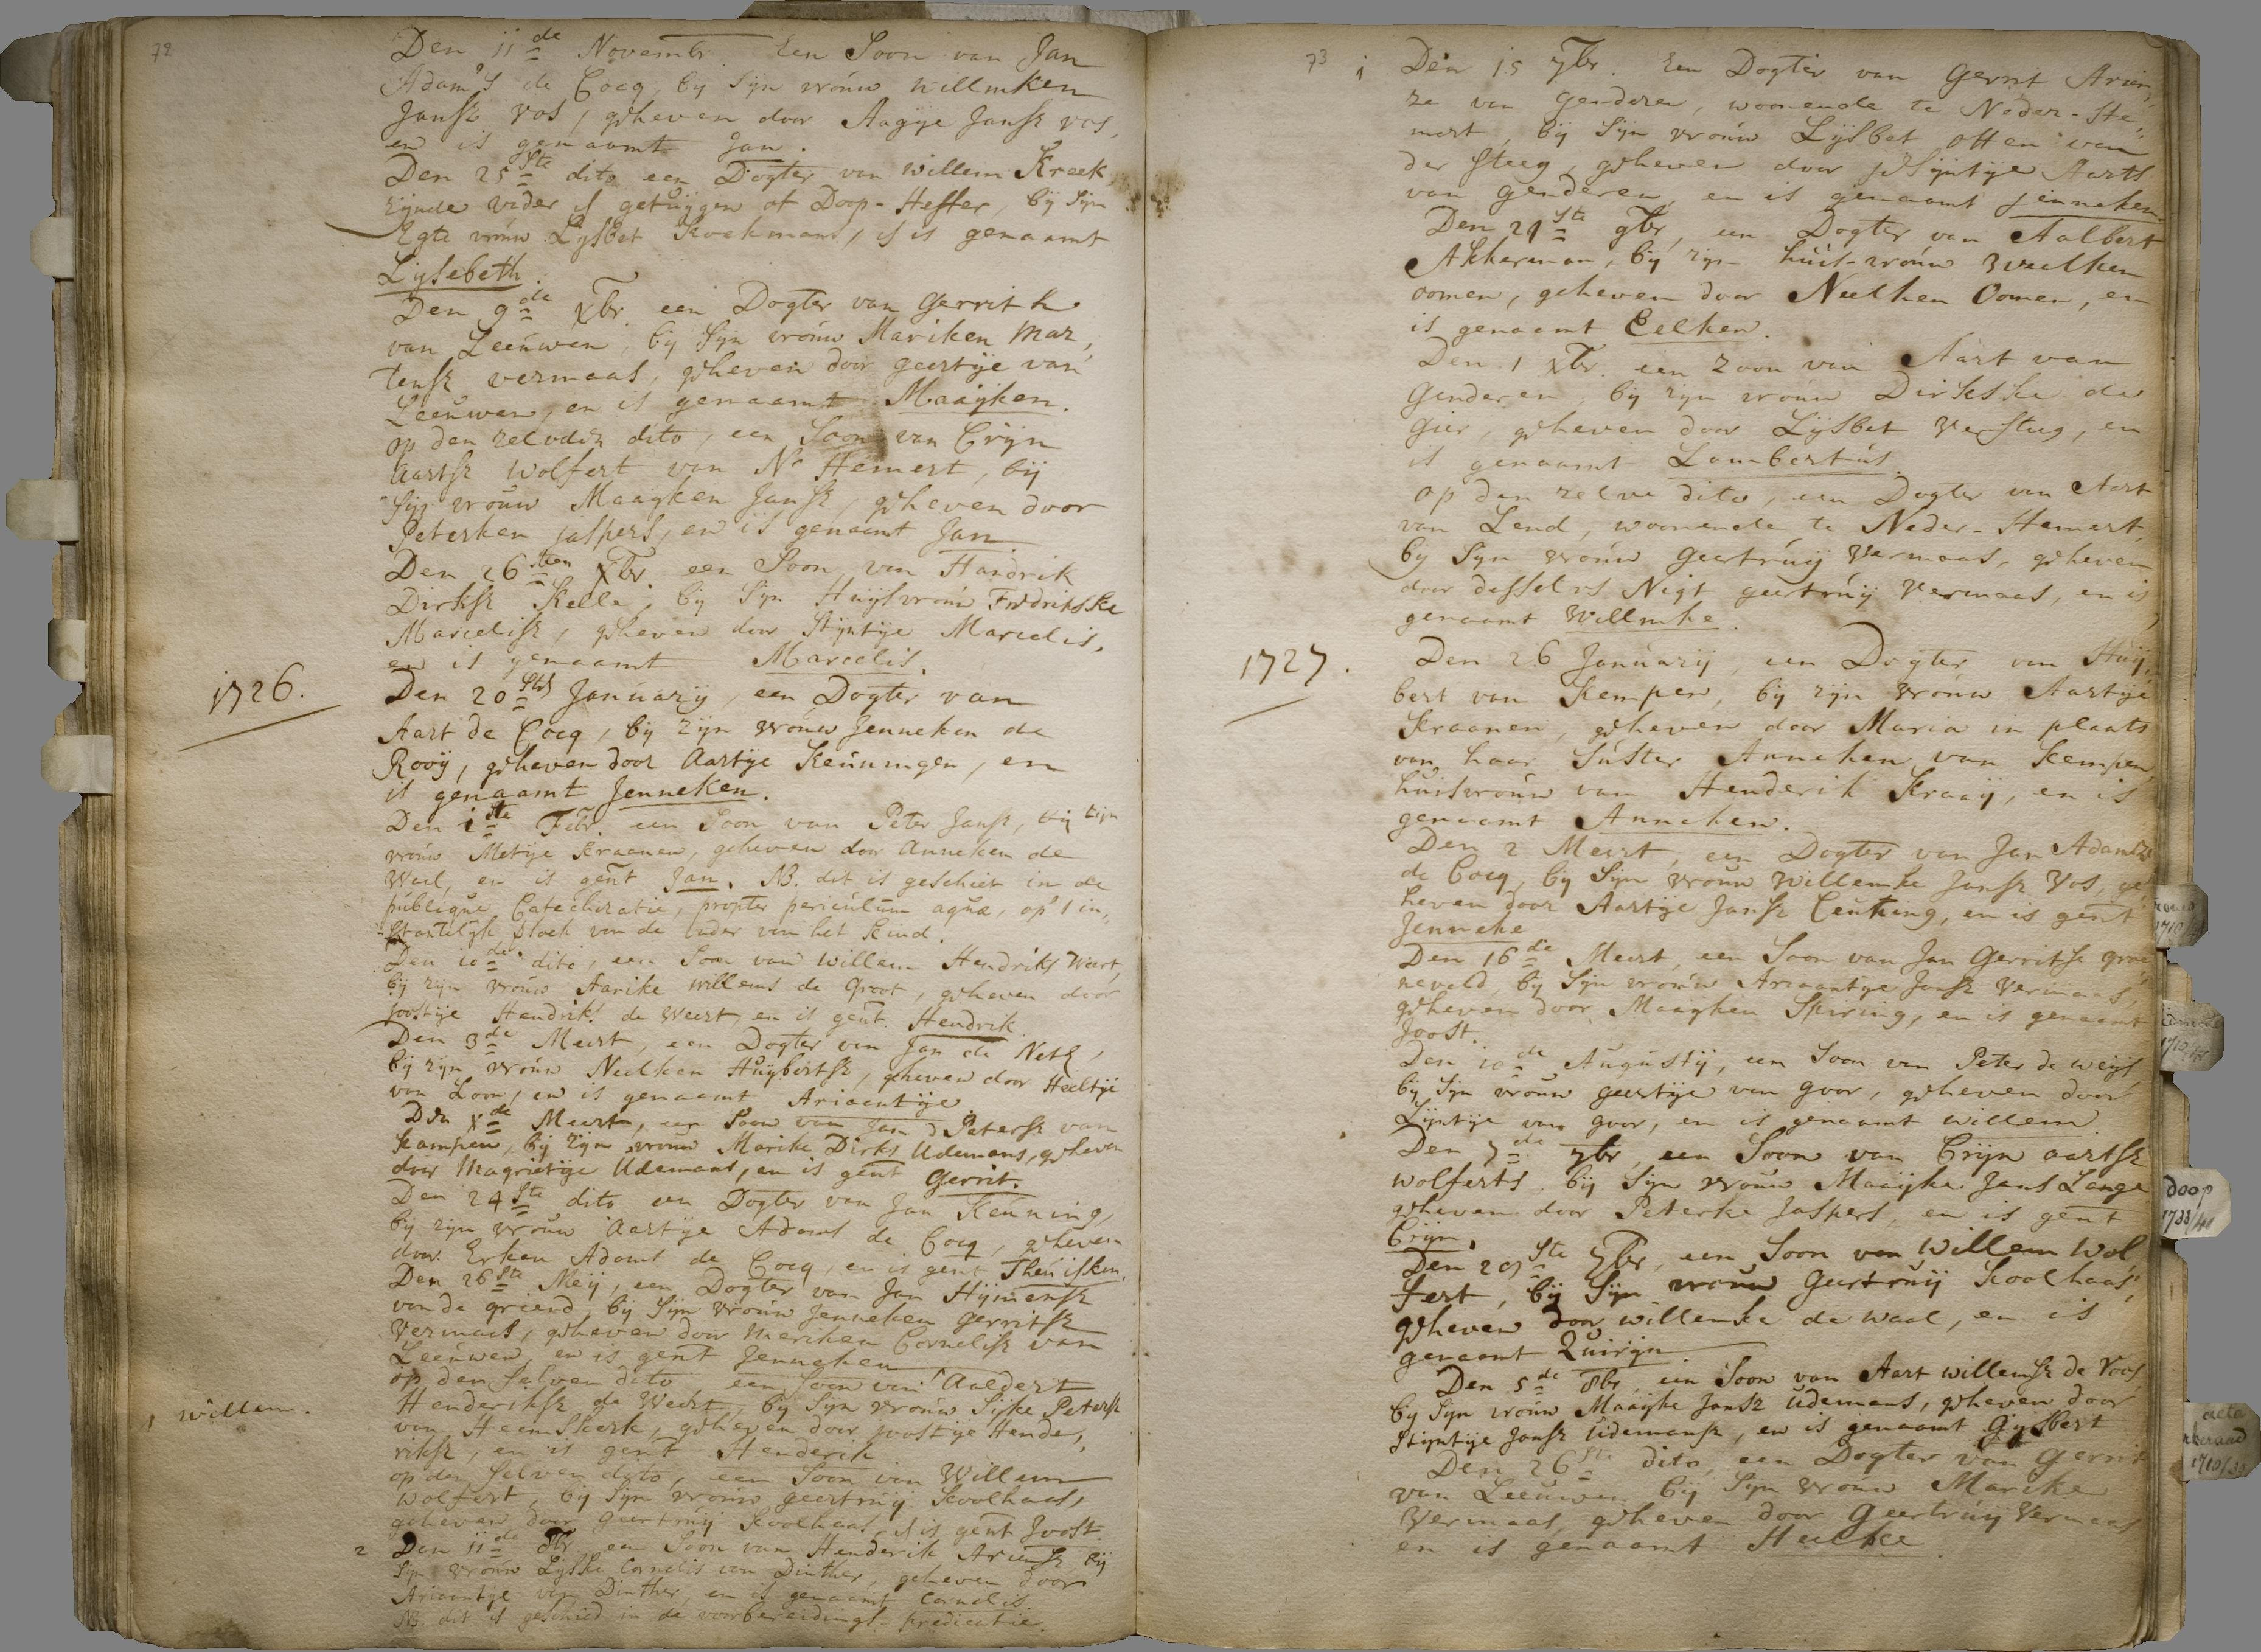 72
Den 11de Novembr. Een Soon van Jan
Adam's de Cocq, by Sijn vrouw willmken
Jansz Vos, geheven door Aagije Jansz vos,
en is genaamt Jan.
Den 25ste dito een Dogter van willem Kreek,
zijnde vader getuijgen of Doop-Heffer, bij Sijn
Egte vrouw Lysbet Kockmans, is genaamt
Lijsebeth.
Den 9de xbr. een Dogter van Gerrit h
van Leeuwen, bij Sijn vrouw Mariken Mar,
tensz vermaas, geheven door geertije van
Leeuwen, en is genaamt Maaijken.
op den zelvden dito, een Soon van Crijn
aartsz wolfert van Nr Hemert, bij
Sijn vrouw Maaijken Jansz, geheven door
Peterken jaspers, en is genaamt Jan
Den 26sten xbr. een Soon van Handrik
Dirksz Kelle, bij Sijn Huijsvrouw Fredrikske
Marcelisz, geheven door Stijntije Marcelis,
en is genaamt Marcelis.
1726.
Den 20ste Januarij, een Dogter van
Aart de Cocq, bij zijn vrouw Jenneken de
Rooij, geheven door Aartije Keuningen, en
is genaamt Jenneken.
Den 1ste Febr. een Soon van Peter Jansz, bij zijn
vrouw Metije Kraanen, geheven door Anneken de
Waal, en is gent Jan. NB. dit is geschiet in de
publique Catechizatie, propter periculum aquæ, op 't in,,
stantelijk van de vader van het kind.
Den 10de dito, een Soon van willem Hendriks Weert,
bij zijn vrouw Aarike willems de Groot, geheven door
Joostije Hendriks de Weert, en is gent. Hendrik.
Den 3de Meert, een Dogter van Jan de Neth,
bij zijn vrouw Neelken Huijbertsz, geheven door Heeltije
van Loon, en is genaamt Ariaantije
Den xde Meert, een Soon van Jan Petersz van
Kampen, bij zijn vrouw Marike Dirks Udemans, geheven
door Magrietije Udemans, en is gent Gerrit.
Den 24ste dito een Dogter van Jan Keuning,
bij zijn vrouw Aartije Adams de Cocq, geheven
door Erken Adams de Cocq, en is gent Theunisken.
Den 26ste Meij, een Dogter van Jan Hijmensz
van de griend, bij Sijn vrouw Jenneken Gerritsz
Vermaas, geheven door Mariken Cornelisz van
Leeuwen en is gent Jenneken
op den selven dito een Soon van Aaldert
Henderiksz de Weert, bij Sijn vrouw Sijke Petersz
1 willem.
van Heemskerk, geheven door Joostije Hende,
riksz, en is gent Henderik
op den selven dito, een Soon van Willem
wolfert, bij Sijn vrouw geertruij Koolhaas,
geheven door Geertruij Koolhaas, is gent Joost
2 Den 11de 8br een Soon van Henderik Ariensz bij
Sijn vrouw Lijske Cornelis van Dinther, geheven door
Ariaantije van Dinther, en is genaamt Cornelis.
NB. dit is geschied in de voorbereidings-predicatie.
73
1 Den 15 7br. Een Dogter van Gerrit Arien,,
ze van Genderen, woonende te Neder-He,,
mert, bij Sijn vrouw Lijsbet Otten van
der Steeg, geheven door Stijntije Aarts
van Genderen, en is genaamt Jenneken.
Den 21ste 9br, een Dogter van Aalbert
Akkerman, bij zijn huis-vrouw Weelken
oomen, geheven door Neelken Oomen, en
is genaamt Eelken.
Den 1 xbr. een zoon van Aart van
Genderen, bij zijn vrouw Dirkske de
Gier, geheven door Lijsbet Versteeg, en
is genaamt Lambertus.
op den zelve dito, een Dogter van Aert
van Lend, woonende te Neder-Hemert,
bij Sijn vrouw Geertruij Vermaas, geheven
door desselvs Nigt geertruij Vermaas, en is
genaamt Willmke.
1727.
Den 26 Januarij, een Dogter van Huij,,
bert van Kempen, bij zijn vrouw Aartije
Kraanen, geheven door Maria in plaats
van haar Suster Anneken van Kempen,
huisvrouw van Henderik Kraaij, en is
genaamt Anneken.
Den 2 Meert, een Dogter van Jan Adamsz
de Cocq, bij Sijn vrouw Willemke Jansz Vos, ge,
heven door Aartije Jansz Ceuning, en is gent
Jenneke
Den 16de Meert, een Soon van Jan Gerritse groe,
neveld, bij Sijn vrouw Ariaantije Jansz Vermaas,
geheven door Maaijken Spiring, en is genaamt
Joost.
Den 10de Augustij, een Soon van Peter de weijs
bij Sijn vrouw geertije van goor, geheven door
Lijntije van goor, en is genaamt willem.
Den 7de 7br, een Soon van Crijn aartsz
wolferts, bij Sijn vrouw Maaijke Jans Lange
geheven door Peterke Jaspers, en is gent
Crijn.
Den 29ste 7br, een Soon van Willem Wol,
fert, bij Sijn vrouw Geertruij Koolhaas,
geheven door willemke de waal, en is
genaamt Quirijn
Den 5de 8br, een Soon van Aart willemsz de Voos
bij Sijn vrouw Maaijke Jansz Udemans, geheven door
Stijntije Jansz Udemansz, en is genaamt Gijsbert
Den 26ste dito, een Dogter van Gerrit
van Leeuwen bij Sijn vrouw Marike
Vermaas, geheven door Geertruij Vermaas
en is genaamt Heelke
doop
1733/41
acta
1710/33